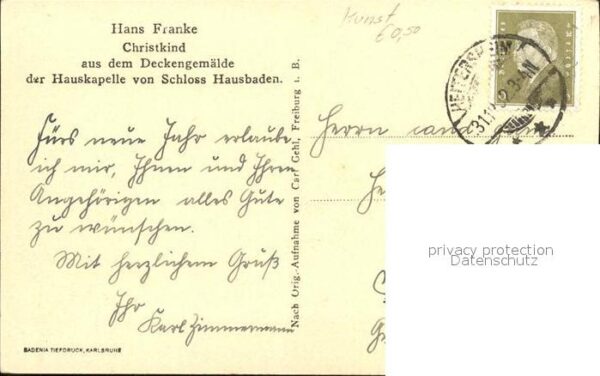 Hans Franke
Christkind
aus dem Deckengemälde
der Hauskapelle von Schloss Hausbaden.
Kunst
60,50
Fürs neue Jahr erlaube
ich mir, Ihnen und Ihren
Angehörigen alles Gute
zu wünschen.
Mit herzlichem Gruß
Ihr
Karl Zimmermann
BADENIA TIEFDRUCK, KARLSRUHE
Nach Orig.-Aufnahme von Carl Gehl, Freiburg i. B.
Herrn cand.
privacy protection
Datenschutz